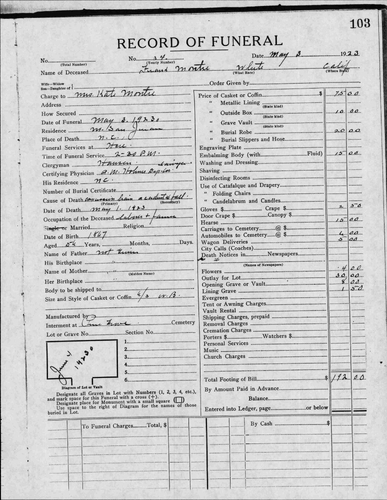 103
RECORD OF FUNERAL
No. (Total Number) No. 34 (Yearly Number) Date May 3 1923
Name of Deceased Frank White (What Race) Calif (Where Born)
Wife—Widow
Son—Daughter of
Charge to Mrs. Kate
Address
How Secured
Date of Funeral May 3, 1923
Residence San Juan
N.C.
Funeral Services at
Time of Funeral Service 2-30 P.M.
Clergyman
Certifying Physician
His Residence N.C.
Number of Burial Certificate
Cause of Death (Primary) (Secondary)
Date of Death May 1 1923
Occupation of the Deceased
Single or Married Religion
Date of Birth 1869
Aged 54 Years, Months, Days.
Name of Father not given
His Birthplace
Name of Mother (Maiden Name)
Her Birthplace
Body to be shipped to
Size and Style of Casket or Coffin 6/3
Manufactured by
Interment at Cemetery
Lot or Grave No. Section No.
1.
2.
3.
4.
5.
Diagram of Lot or Vault
Designate all Graves in Lot with Numbers (1, 2, 3, 4, etc.), and mark space for this Funeral with a cross (+). Designate place for Monument with a small square
Use space to right of Diagram for the names of those buried in Lot.
Order Given by
Price of Casket or Coffin (State Kind) $ 75 00
" Metallic Lining (State Kind)
" Outside Box (State Kind) 10 00
" Grave Vault (State Kind)
" Burial Robe (State Kind) 20 00
" Burial Slippers and Hose
Engraving Plate
Embalming Body (with Fluid) 15 00
Washing and Dressing
Shaving
Disinfecting Rooms
Use of Catafalque and Drapery
" Folding Chairs
" Candelabrum and Candles
Gloves $ Crape $ 2 50
Door Crape Canopy $
Hearse 15 00
Carriages to Cemetery @
Automobiles to Cemetery @
Wagon Deliveries 5 00
City Calls (Coaches)
Death Notices in Newspapers
(Names of Newspapers)
Flowers
Outlay for Lot
Opening Grave or Vault 8 00
Lining Grave 1 50
Evergreen
Tent or Awning Charges
Vault Rental
Shipping Charges, prepaid
Removal Charges
Cremation Charges
Porters $ Watchers $
Personal Services
Music
Church Charges
Total Footing of Bill $ 192 00
By Amount Paid in Advance
Balance
Entered into Ledger, page or below
To Funeral Charges Total, $
By Cash $